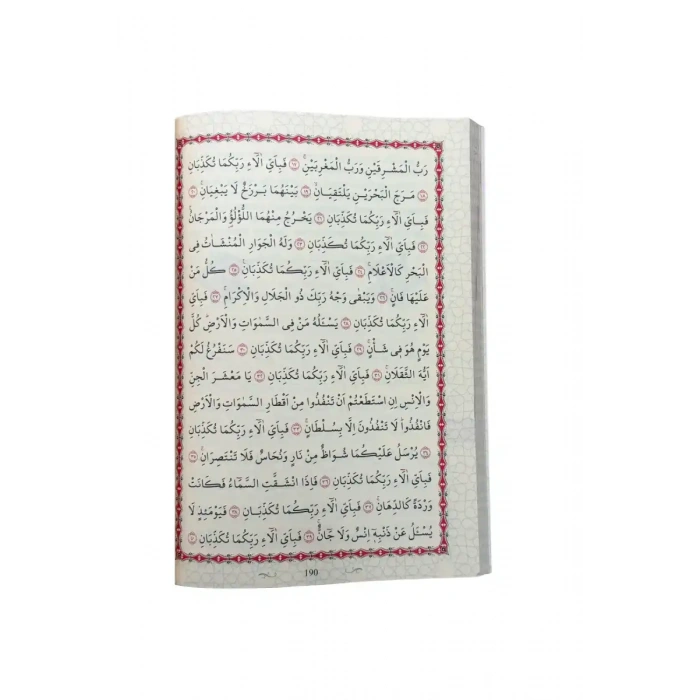 رَبُّ الْمَشْرِقَيْنِ وَرَبُّ الْمَغْرِبَيْنِۚ ﴿١٧﴾ فَبِاَيِّ اٰلَٓاءِ رَبِّكُمَا تُكَذِّبَانِ
﴿١٨﴾ مَرَجَ الْبَحْرَيْنِ يَلْتَقِيَانِۙ ﴿١٩﴾ بَيْنَهُمَا بَرْزَخٌ لَا يَبْغِيَانِۚ ﴿٢٠﴾
فَبِاَيِّ اٰلَٓاءِ رَبِّكُمَا تُكَذِّبَانِ ﴿٢١﴾ يَخْرُجُ مِنْهُمَا اللُّؤْلُؤُ وَالْمَرْجَانُۚ
﴿٢٢﴾ فَبِاَيِّ اٰلَٓاءِ رَبِّكُمَا تُكَذِّبَانِ ﴿٢٣﴾ وَلَهُ الْجَوَارِ الْمُنْشَاٰتُ فِى
الْبَحْرِ كَالْاَعْلَامِۚ ﴿٢٤﴾ فَبِاَيِّ اٰلَٓاءِ رَبِّكُمَا تُكَذِّبَانِ۟ ﴿٢٥﴾ كُلُّ مَنْ
عَلَيْهَا فَانٍۚ ﴿٢٦﴾ وَيَبْقٰى وَجْهُ رَبِّكَ ذُو الْجَلَالِ وَالْاِكْرَامِۚ ﴿٢٧﴾ فَبِاَيِّ
اٰلَٓاءِ رَبِّكُمَا تُكَذِّبَانِ ﴿٢٨﴾ يَسْـَٔلُهُ مَنْ فِى السَّمٰوَاتِ وَالْاَرْضِۜ كُلَّ
يَوْمٍ هُوَ فِى شَاْنٍۚ ﴿٢٩﴾ فَبِاَيِّ اٰلَٓاءِ رَبِّكُمَا تُكَذِّبَانِ ﴿٣٠﴾ سَنَفْرُغُ لَكُمْ
اَيُّهَ الثَّقَلَانِۚ ﴿٣١﴾ فَبِاَيِّ اٰلَٓاءِ رَبِّكُمَا تُكَذِّبَانِ ﴿٣٢﴾ يَا مَعْشَرَ الْجِنِّ
وَالْاِنْسِ اِنِ اسْتَطَعْتُمْ اَنْ تَنْفُذُوا مِنْ اَقْطَارِ السَّمٰوَاتِ وَالْاَرْضِ
فَانْفُذُواۜ لَا تَنْفُذُونَ اِلَّا بِسُلْطَانٍۚ ﴿٣٣﴾ فَبِاَيِّ اٰلَٓاءِ رَبِّكُمَا تُكَذِّبَانِ
﴿٣٤﴾ يُرْسَلُ عَلَيْكُمَا شُوَاظٌ مِنْ نَارٍ وَنُحَاسٌ فَلَا تَنْتَصِرَانِۚ ﴿٣٥﴾
فَبِاَيِّ اٰلَٓاءِ رَبِّكُمَا تُكَذِّبَانِ ﴿٣٦﴾ فَاِذَا انْشَقَّتِ السَّمَٓاءُ فَكَانَتْ
وَرْدَةً كَالدِّهَانِۚ ﴿٣٧﴾ فَبِاَيِّ اٰلَٓاءِ رَبِّكُمَا تُكَذِّبَانِ ﴿٣٨﴾ فَيَوْمَئِذٍ لَا
يُسْـَٔلُ عَنْ ذَنْبِهٖٓ اِنْسٌ وَلَا جَٓانٌّۚ ﴿٣٩﴾ فَبِاَيِّ اٰلَٓاءِ رَبِّكُمَا تُكَذِّبَانِ ﴿٤٠﴾
190